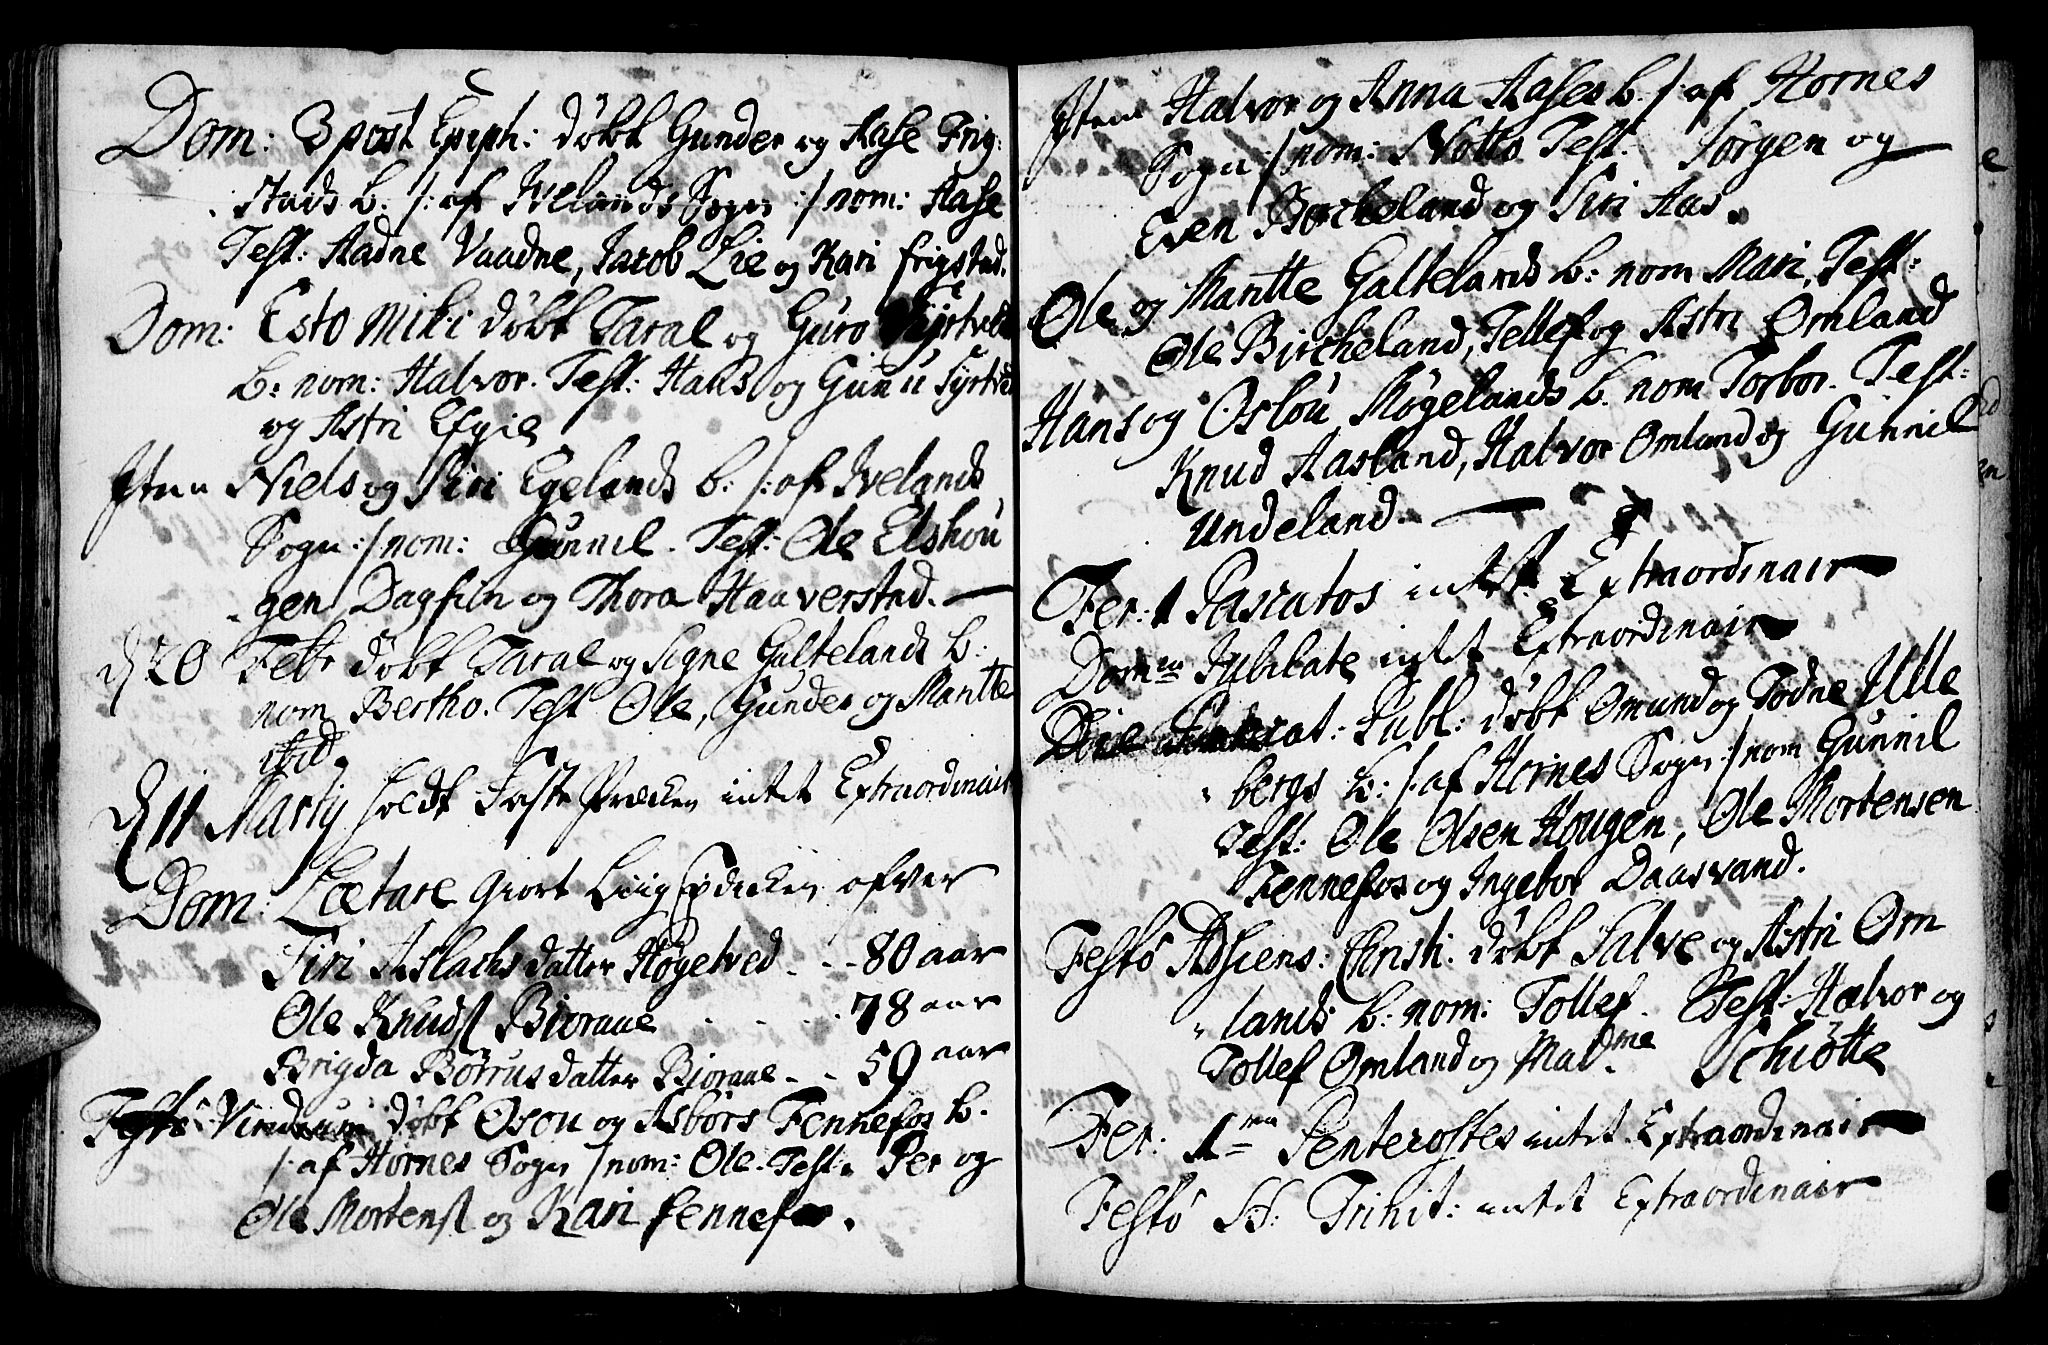 Dom: 3 post Epiph: døbt Gunder og Aase Frig:
stads b. /: af Ivelands Sogn :/ nom: Aase
Test: Aadne Vaadne, Jacob Lie og Kari Frigstad.
Dom: Esto Mihi døbt Taral og Guro Tyrtved
b: nom: Halvor. Test: Hans og Gunu Tyrtved
og Astri Efgie
Item Niels og Siri Egelands b: /: af Ivelands
Sogn :/ nom: Gunnil. Test: Ole Elshou
gen, Dagfin og Thora Haaverstad.
d 20 Febr døbt Taral og Signe Galtelands b:
nom Bertho. Test Ole, Gunder og Mantte
ibid.
d 11 Martij holdt Faste Prædicken intet Extraordinair
Dom: Lætare giort Liig Prædicken ofver
Siri Aslachsdatter Høgetved - - - 80 aar
Ole Knuds Bioraae - - - - - 78 aar
Brigda Børrusdatter Bioraae - - 59 aar
Festo Viridium døbt Osou og Asbørs Fennefos b.
/: af Hornes Sogn :/ nom: Ole. Test: Per og
Ole Mortens og Kari Fennefos.
Item Halvor og Anna Aases b. /: af Hornes
Sogn :/ nom: Notto. Test: Jørgen og
Even Bircheland og Siri Aas.
Ole og Mantte Galtelands b: nom Mari, Test:
Ole Bircheland, Tellef og Astri Omland
Hans og Oslou Møgelands b. nom Torbor. Test:
Knud Aasland, Halvor Omland og Gunnil
Undeland.
Fer: 1 Pascatos intet Extraordinair
Dom Jubilate intet Extraordinair
Die Precat: Publ: døbt Omund og Todne Ulle
bergs b: /: af Hornes Sogn :/ nom Gunnil
Test: Ole Olsen Hougen, Ole Mortensen
Fennefos og Ingebor Daasvand.
Festo Adscens: Christi. døbt Salve og Astri Om
lands b: nom: Tollef. Test: Halvor og
Tollef Omland og Madme Schiøtte
Fer: 1ma Pentecostes intet Extraordinair
Festo S: Trinit: intet Extraordinair